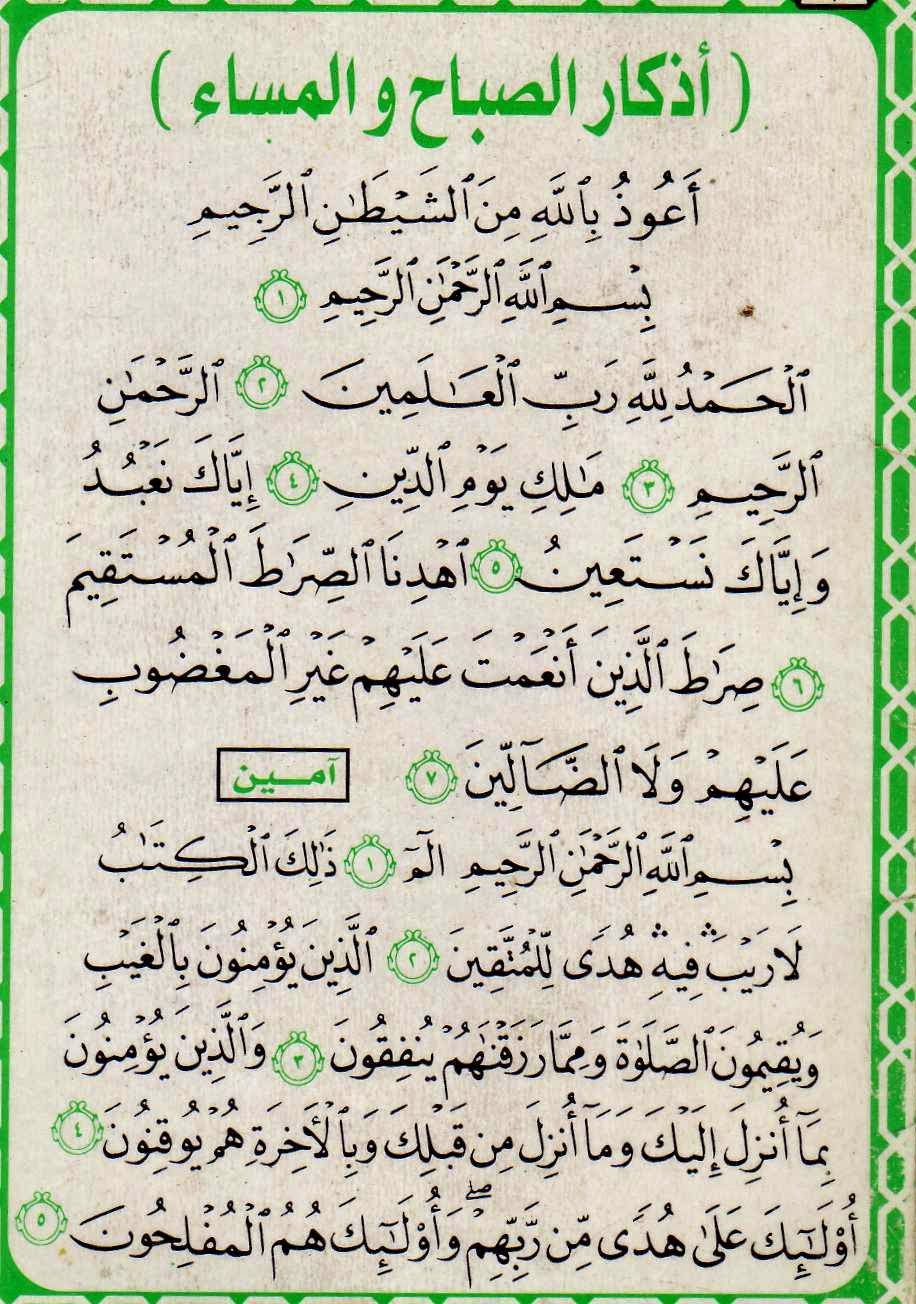 ( أذكار الصباح و المساء )
أَعُوذُ بِٱللَّهِ مِنَ ٱلشَّيۡطَٰنِ ٱلرَّجِيمِ
بِسۡمِ ٱللَّهِ ٱلرَّحۡمَٰنِ ٱلرَّحِيمِ ١
ٱلۡحَمۡدُ لِلَّهِ رَبِّ ٱلۡعَٰلَمِينَ ٢ ٱلرَّحۡمَٰنِ
ٱلرَّحِيمِ ٣ مَٰلِكِ يَوۡمِ ٱلدِّينِ ٤ إِيَّاكَ نَعۡبُدُ
وَإِيَّاكَ نَسۡتَعِينُ ٥ ٱهۡدِنَا ٱلصِّرَٰطَ ٱلۡمُسۡتَقِيمَ
٦ صِرَٰطَ ٱلَّذِينَ أَنۡعَمۡتَ عَلَيۡهِمۡ غَيۡرِ ٱلۡمَغۡضُوبِ
عَلَيۡهِمۡ وَلَا ٱلضَّآلِّينَ ٧ آمـين
بِسۡمِ ٱللَّهِ ٱلرَّحۡمَٰنِ ٱلرَّحِيمِ الٓمٓ ١ ذَٰلِكَ ٱلۡكِتَٰبُ
لَا رَيۡبَۛ فِيهِۛ هُدٗى لِّلۡمُتَّقِينَ ٢ ٱلَّذِينَ يُؤۡمِنُونَ بِٱلۡغَيۡبِ
وَيُقِيمُونَ ٱلصَّلَوٰةَ وَمِمَّا رَزَقۡنَٰهُمۡ يُنفِقُونَ ٣ وَٱلَّذِينَ يُؤۡمِنُونَ
بِمَآ أُنزِلَ إِلَيۡكَ وَمَآ أُنزِلَ مِن قَبۡلِكَ وَبِٱلۡأٓخِرَةِ هُمۡ يُوقِنُونَ ٤
أُوْلَٰٓئِكَ عَلَىٰ هُدٗى مِّن رَّبِّهِمۡۖ وَأُوْلَٰٓئِكَ هُمُ ٱلۡمُفۡلِحُونَ ٥